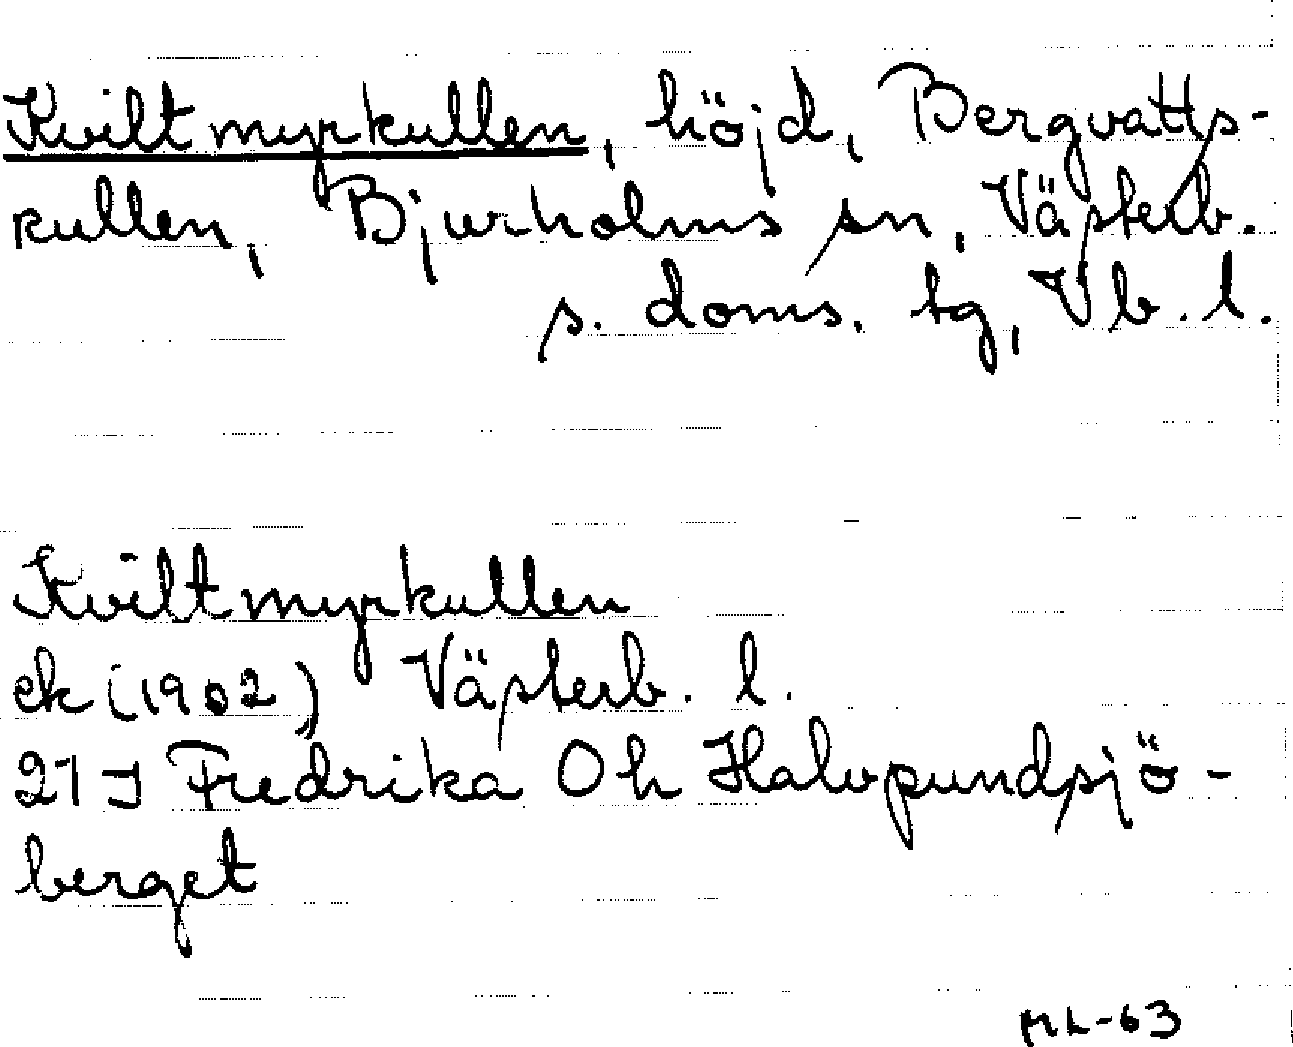 Kviltmyrkullen, höjd, Bergvatts-
kullen, Bjurholms sn, Västerb.
s. doms. tg, Vb. l.
Kviltmyrkullen
ek (1902) Västerb. l.
21 J Fredrika Oh Halvpundsjö-
berget
ML-63